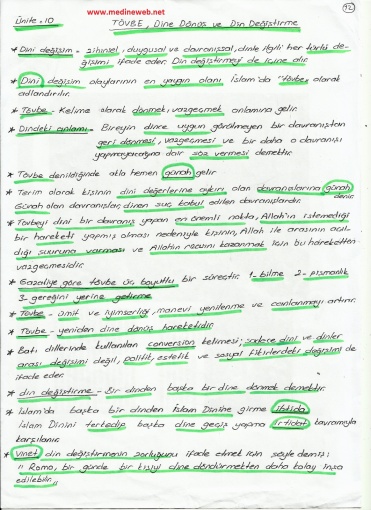 www.medineweb.net
12
Ünite - 10 TÖVBE, Dine Dönüş ve Din Değiştirme
* Dini değişim - zihinsel, duygusal ve davranışsal, dinle ilgili her türlü de-
ğişimi ifade eder. Din değiştirmeyi de içine alır.
* Dini değişim olaylarının en yaygın olanı İslam'da "tövbe" olarak
adlandırılır.
* Tövbe - Kelime olarak dönmek, vazgeçmek anlamına gelir.
* Dindeki anlamı - Bireyin dince uygun görülmeyen bir davranıştan
geri dönmesi, vazgeçmesi ve bir daha o davranışı
yapmayacağına dair söz vermesi demektir.
* Tövbe denildiğinde akla hemen günah gelir
* Terim olarak kişinin dini değerlerine aykırı olan davranışlarına günah
denir
Günah olan davranışlar, dinen suç kabul edilen davranışlardır.
* Tövbeyi dini bir davranış yapan en önemli nokta, Allah'ın istemediği
bir hareketi yapmış olması nedeniyle kişinin, Allah ile arasının açıl-
dığı şuuruna varması ve Allahın rızasını kazanmak için bu hareketten
vazgeçmesidir.
* Gazaliye göre tövbe üç boyutlu bir süreçtir. 1- bilme 2- pişmanlık
3- gereğini yerine getirme
* Tövbe - ümit ve iyimserliği, manevi yenilenme ve canlanmayı artırır.
* Tövbe - yeniden dine dönüş hareketidir.
* Batı dillerinde kullanılan conversion kelimesi; sadece dini ve dinler
arası değişimi değil, politik, estetik ve sosyal fikirlerdeki değişimi de
ifade eder.
* din değiştirme - Bir dinden başka bir dine dönmek demektir.
* İslam'da başka bir dinden İslam Dinine girme ihtida
İslam Dinini terkedip başka dine geçiş yapma irtidat kavramıyla
karşılanır.
* Vinet din değiştirmenin zorluğunu ifade etmek için şöyle demiş:
" Roma, bir günde bir kişiyi dine döndürmekten daha kolay inşa
edilebilir."